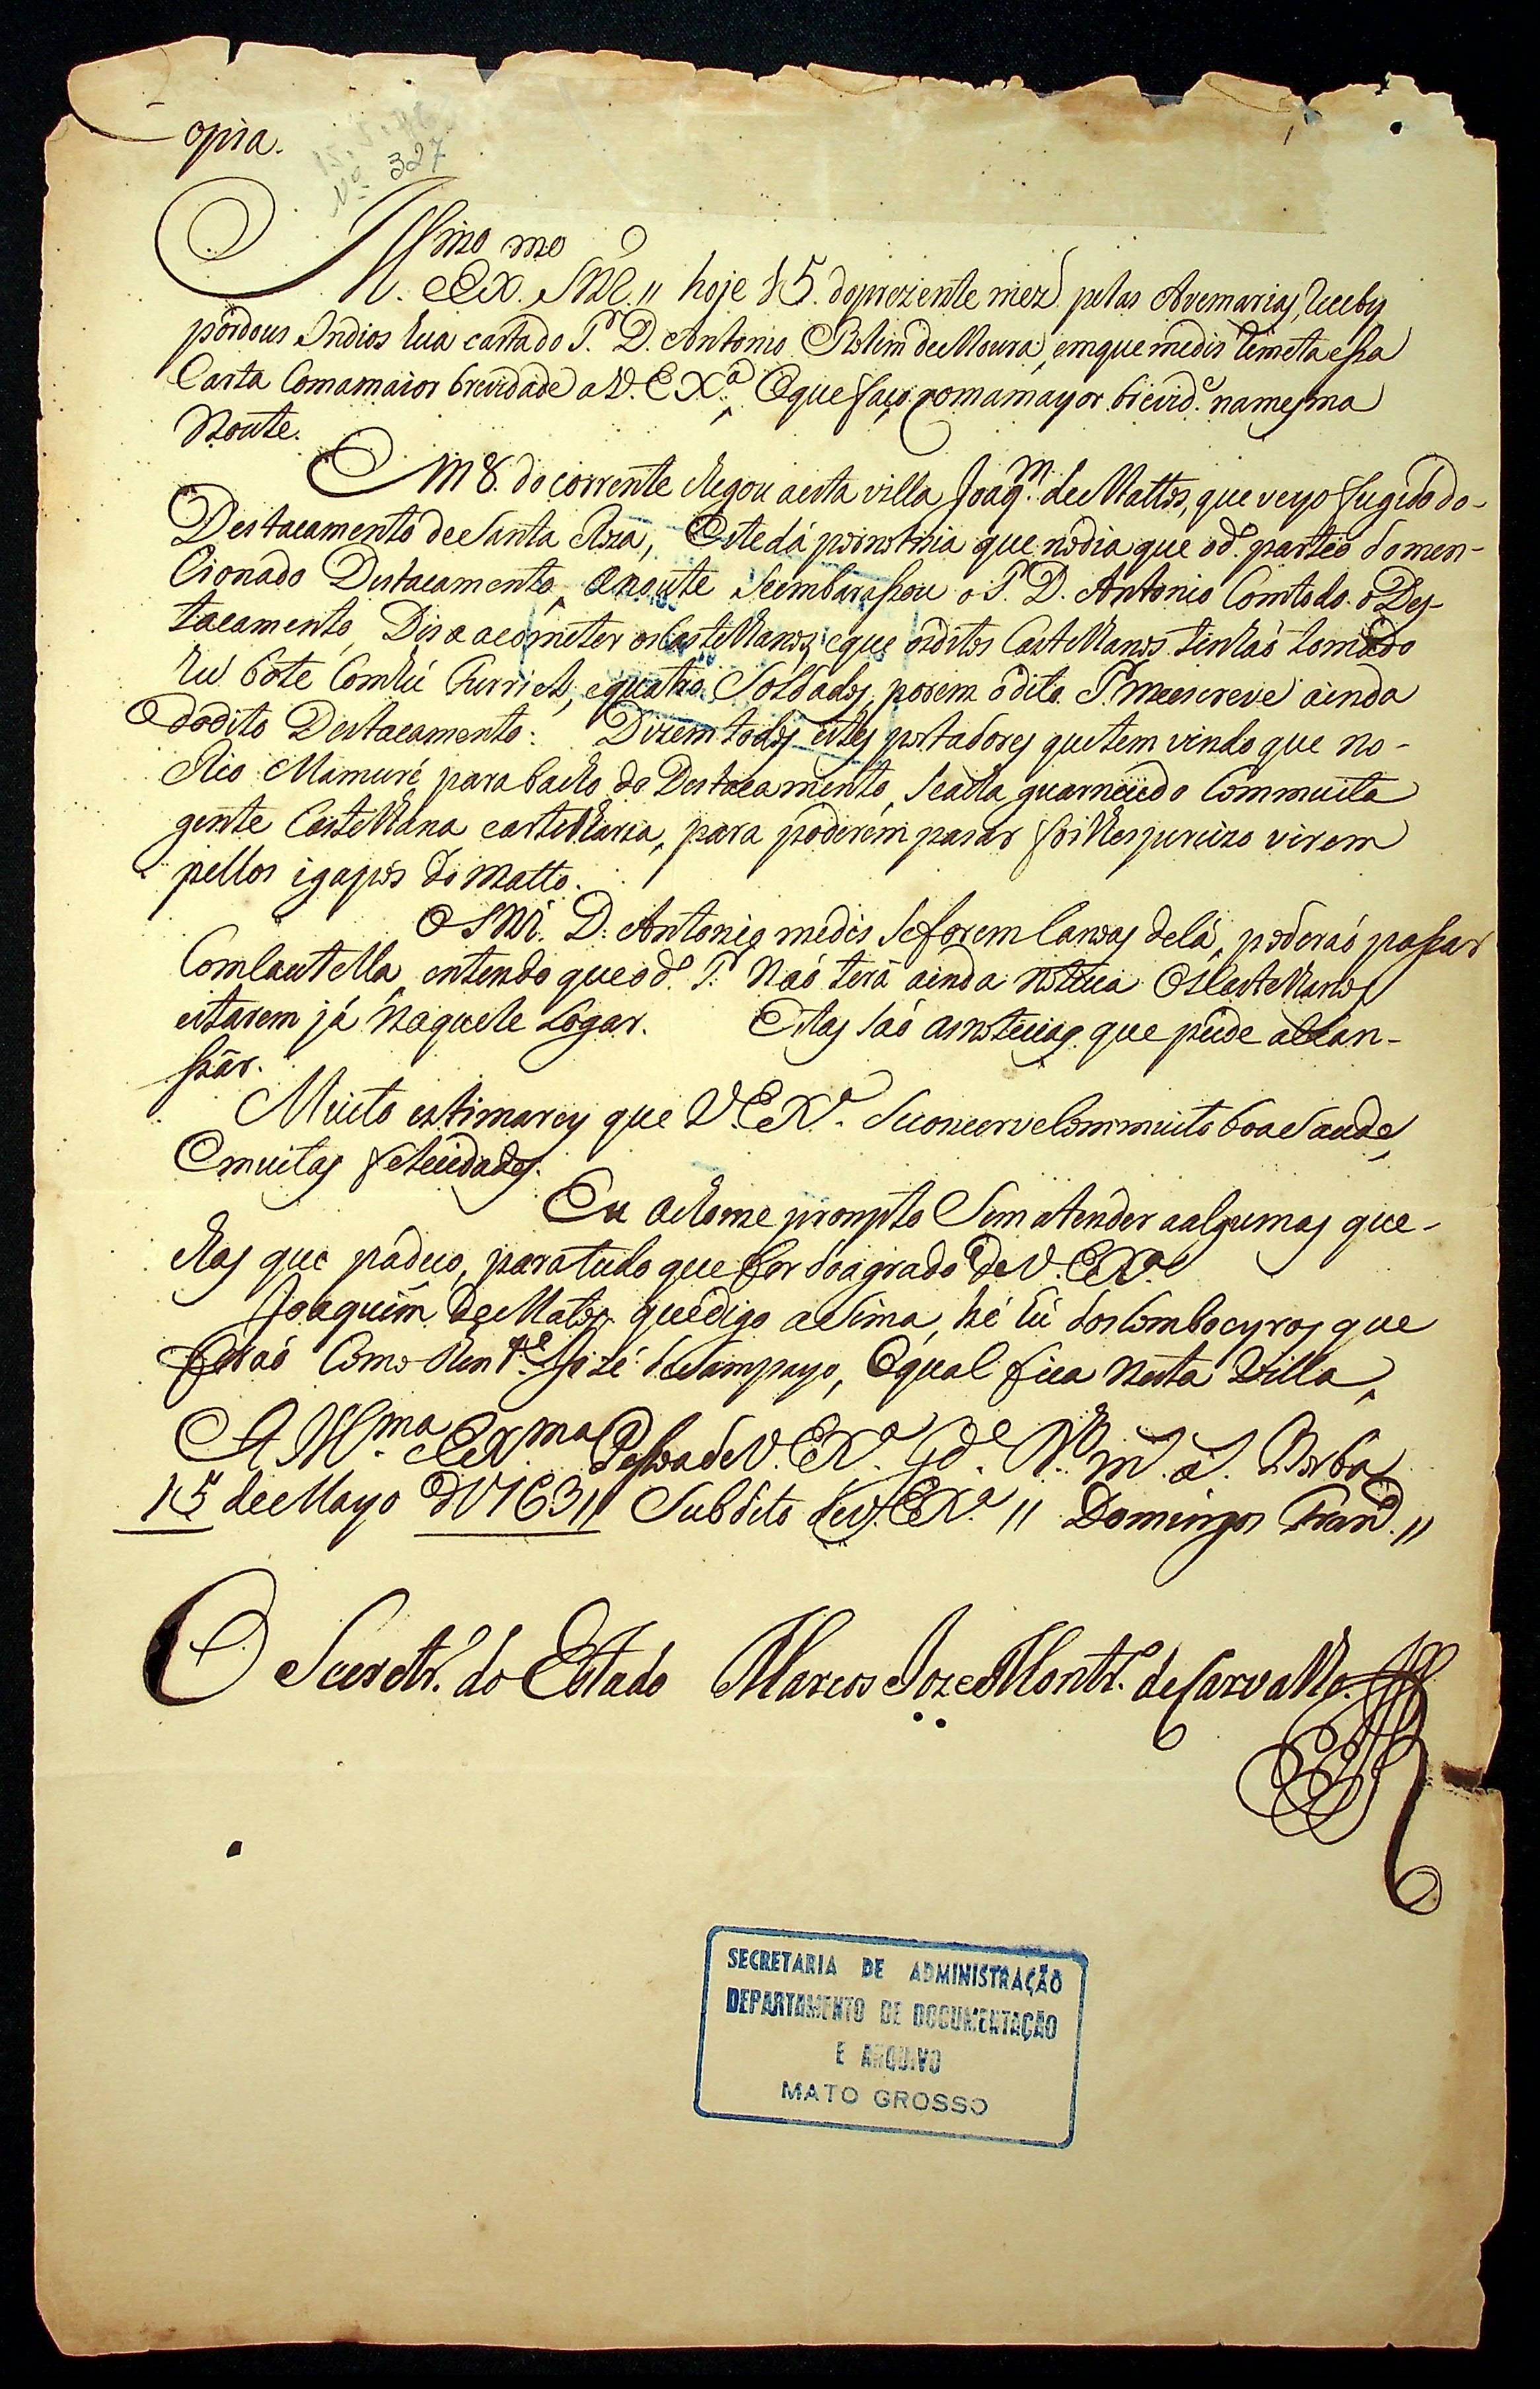 Copia.
15.5.76
Nº 327
Illmo mo
Ex. Snr. // hoje 15. doprezente mez pelas Avemarias, recebÿ
pordous Indios hua cartado S.r D. Antonio Rolim deMoura, emque mediz remeta essa
Carta Comamaior brevidade a V. EX.a, Oque faço comamayor brevid.e namesma
Noute.
EM 8. do corrente chegou aesta villa Joaq.m deMattos, que veyo fugido do-
Destacamento deSanta Roza, Estedá pornoticia que nodia que od.o partio domen-
Cionado Destacamento, anoute seembarassou o S.r D. Antonio Comtodo oDes-
tacamento, Dis a acometer osCastelhanos, eque osditos Castelhanos tinhaó tomado
hu bote Comhú Furriel, equatro Soldados, porem ódito S.r meescreve ainda
dodito Destacamento: Dizem todos estes portadores quetem vindo que no-
Rio Mamuré para baicho do Destacamento, seacha guarnecido Commuita
gente Castelhana eartelharia, para poderem pasar foilhesprecizo virem
pellos igapós do matto.
O Snr. D. Antonio mediz seforem Canoas delá, poderaó passar
Comcautella, entendo queod.o S.r Naó terá ainda noticia OsCastelhanos
estarem já Naquele Logar. Estas saó asnoticias que púde alcan-
sár.
Muito estimarey que V. EX.a seconcerveCommuito boaSaude,
Emuitas felicidades.
Eu achome prompto Sem atender aalgumas que-
chas que padeço, paratudo que for doagrado de V. EX.a
Joaquim deMatos quedigo aSima, hé hú dosComboeyros que
foraó Como Ten.te Jozé deSampayo, Oqual fica nesta Villa,
A Ill.ma EX.ma PesoadeV. EX.a G.de N. m. a. Borba
15 deMayo D1763 // Subdito deV. EX.a // Domingos Fran.co //
O Secretr.o do Estado Marcos Joze Montr.o deCarvalho.
SECRETARIA DE ADMINISTRAÇÃO
DEPARTAMENTO DE DOCUMENTAÇÃO
E ARQUIVO
MATO GROSSO